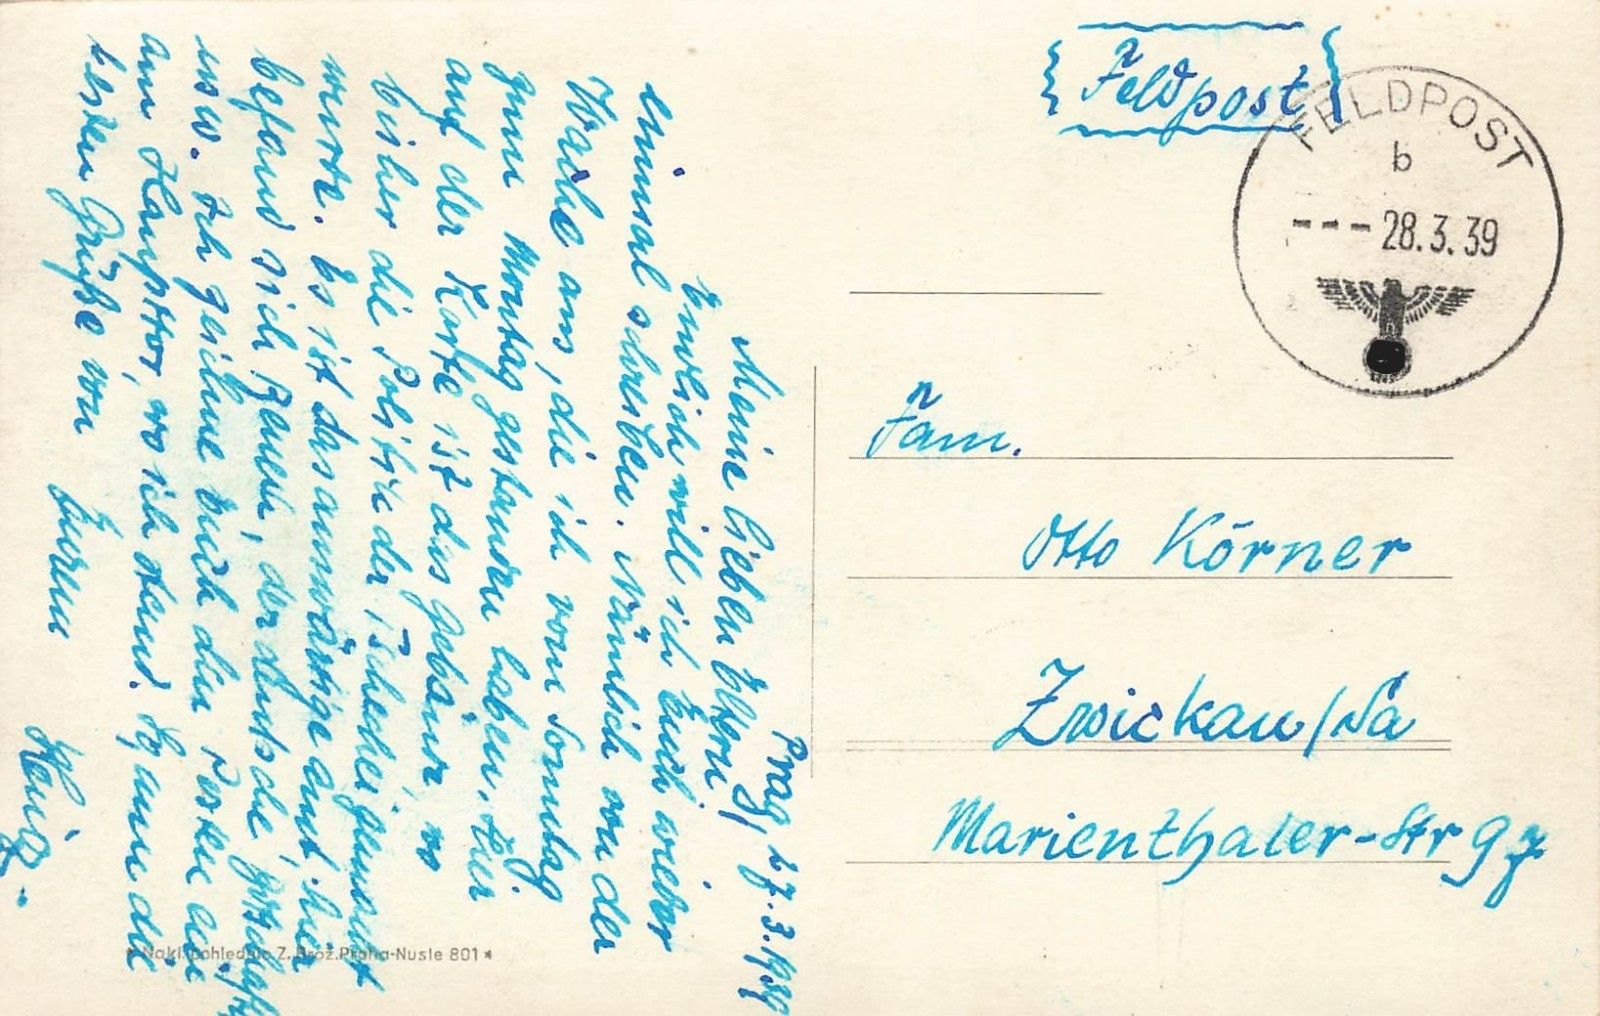 Feldpost
FELDPOST
b
--- 28.3.39
Prag, 27.3.1939
Meine lieben Eltern!
Endlich will ich Euch wieder
einmal schreiben. Nämlich von der
Wache aus, die ich vom Sonntag
zum Montag gestanden haben. Hier
auf der Karte ist das Gebäude, wo
bisher die Politik der Tschechei gemacht
wurde. Es ist das auswärtige Amt. Hier
befand sich der deutsche
usw. Ich zeichne Euch den Posten ein
am Haupttor, wo ich stand. So nun die
besten Grüße von
Eurem
Heinz.
Fam.
Otto Körner
Zwickau/Sa
Marienthaler-Str 97
* Nakl. pohlednic Z. Brož. Praha-Nusle 801 *